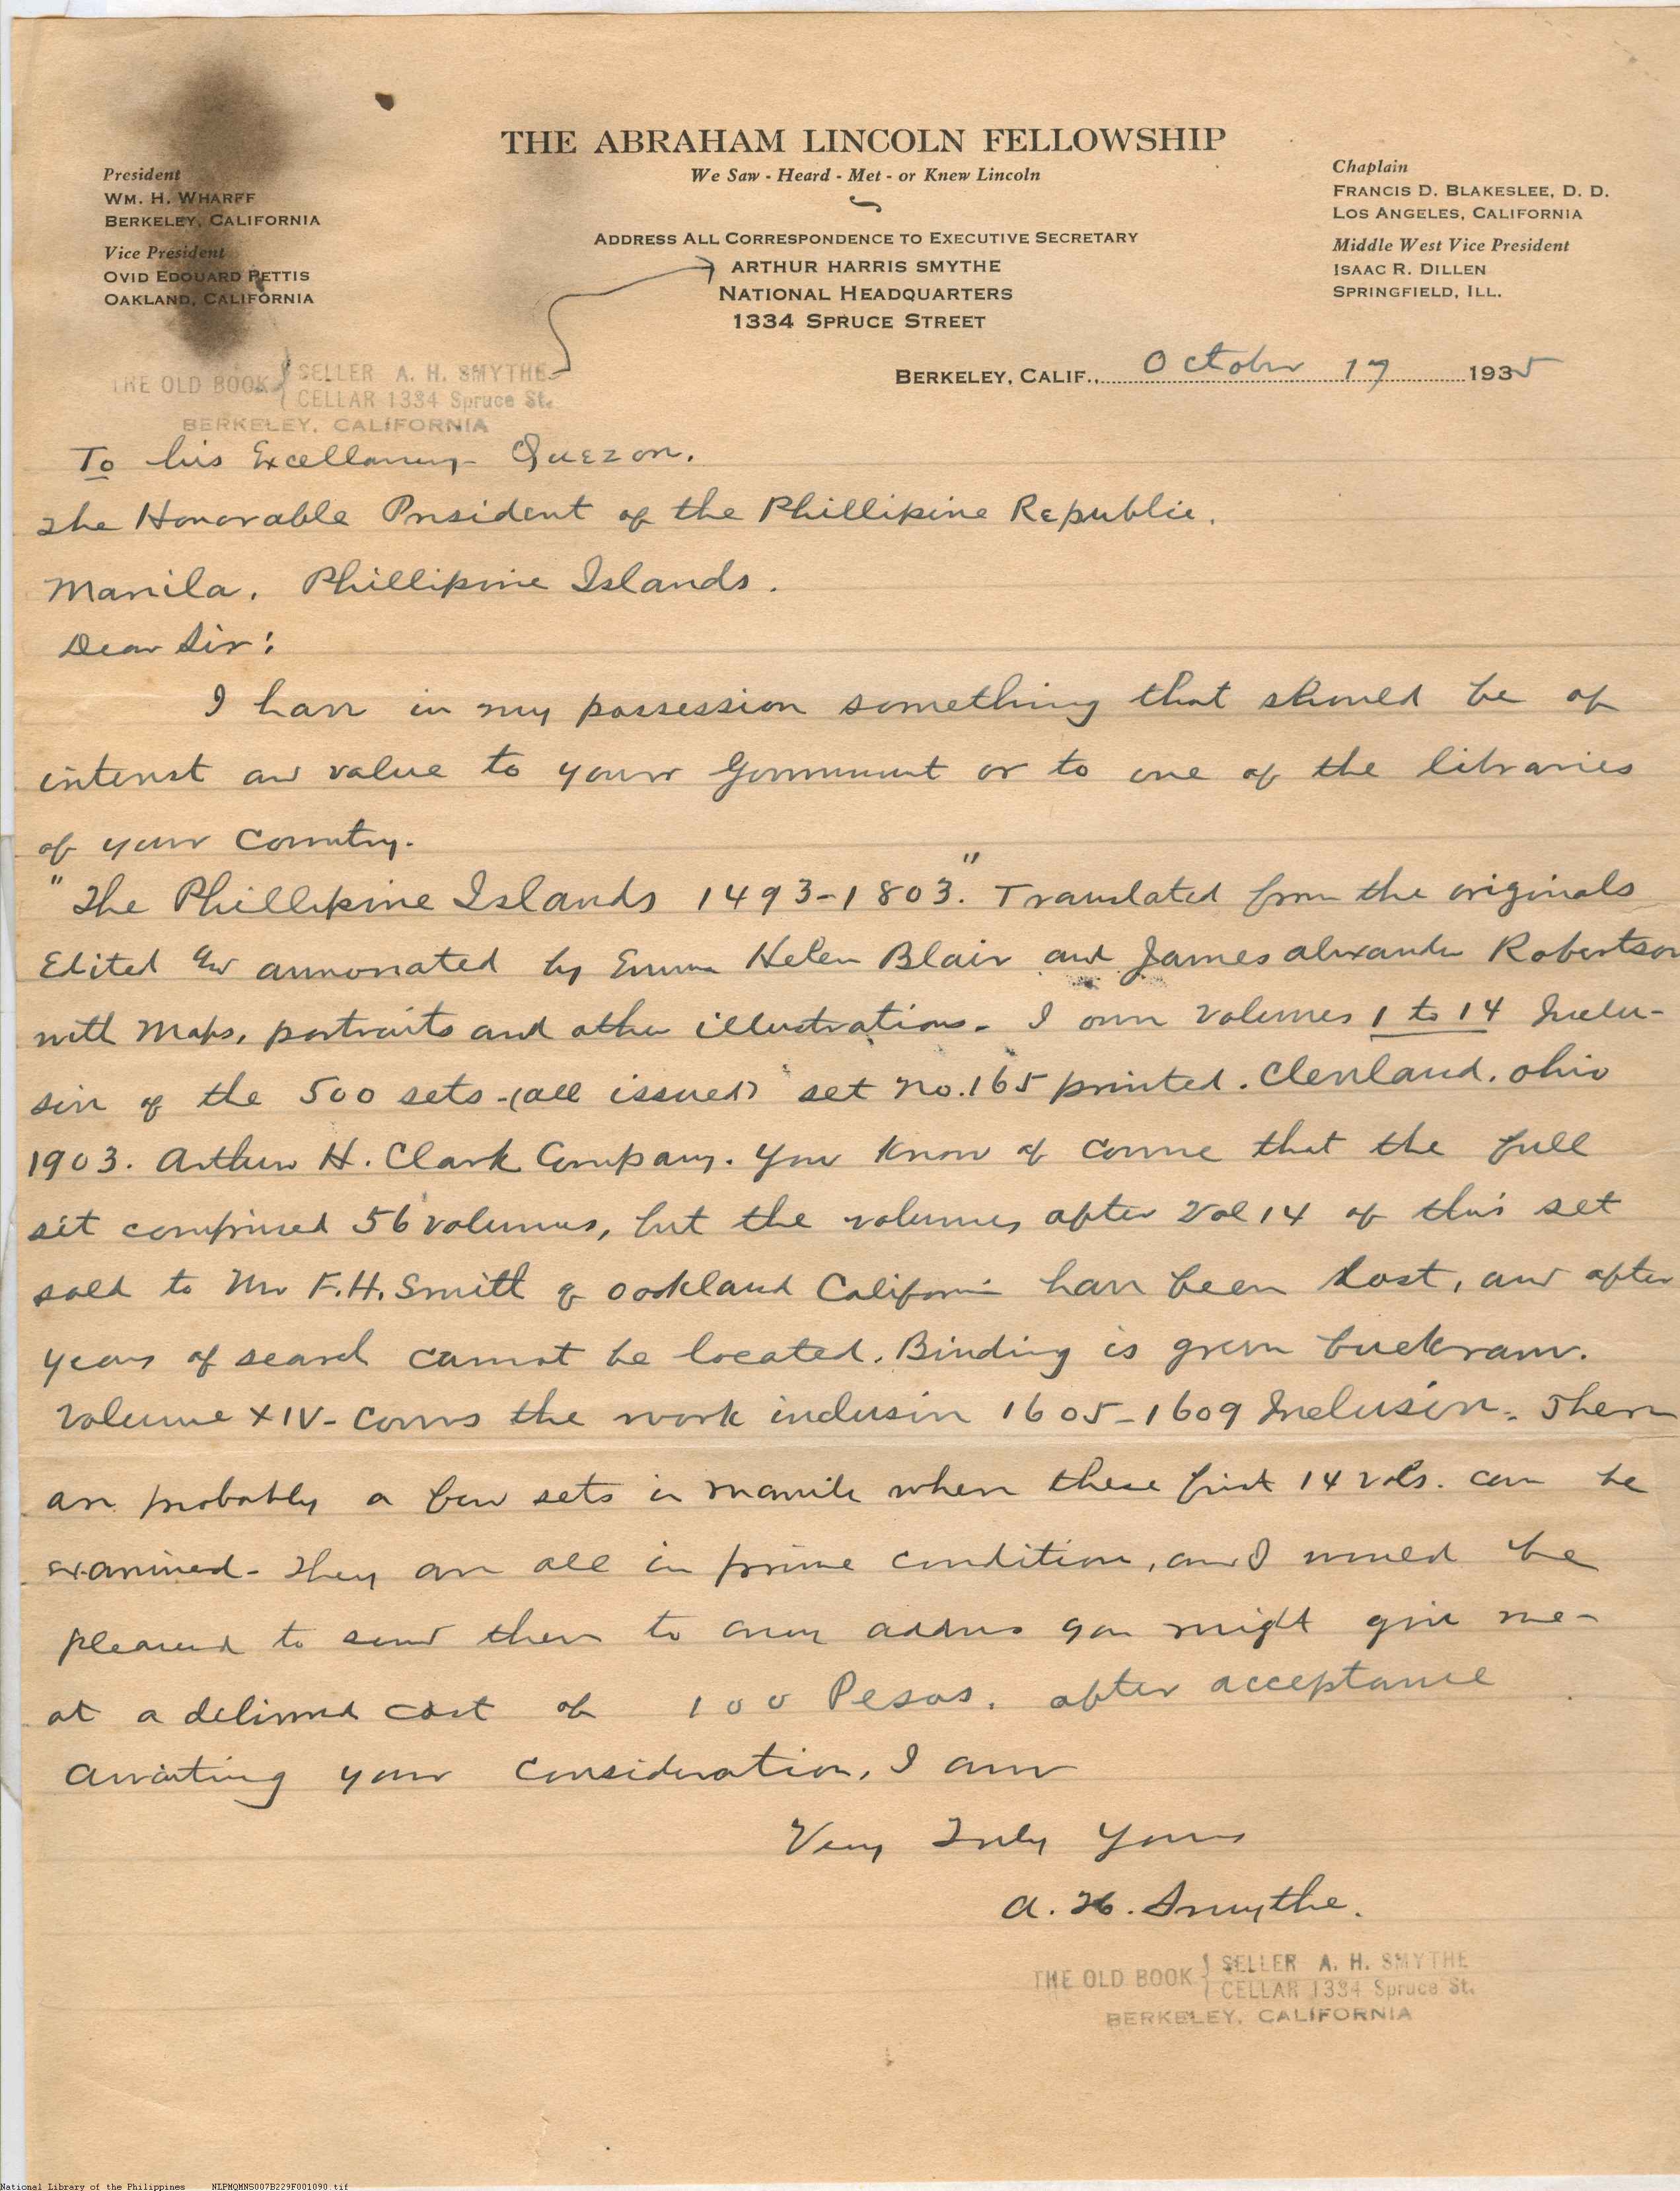 THE ABRAHAM LINCOLN FELLOWSHIP
We Saw - Heard - Met - or Knew Lincoln
President
WM. H. WHARFF
BERKELEY, CALIFORNIA
Vice President
OVID EDOUARD PETTIS
OAKLAND, CALIFORNIA
ADDRESS ALL CORRESPONDENCE TO EXECUTIVE SECRETARY
ARTHUR HARRIS SMYTHE
NATIONAL HEADQUARTERS
1334 SPRUCE STREET
Chaplain
FRANCIS D. BLAKESLEE, D. D.
LOS ANGELES, CALIFORNIA
Middle West Vice President
ISAAC R. DILLEN
SPRINGFIELD, ILL.
BERKELEY, CALIF., October 17 1935
THE OLD BOOK { SELLER A. H. SMYTHE
CELLAR 1334 Spruce St.
BERKELEY, CALIFORNIA
To his Excellancy Quezon.
The Honorable President of the Phillipine Republic.
Manila. Phillipine Islands.
Dear Sir:
I have in my possession something that should be of
interest and value to your Government or to one of the libraries
of your Country.
"The Phillipine Islands 1493-1803." Translated from the originals
Edited and annorated by Emma Helen Blair and James Alexander Robertson
with Maps, portraits and other illustrations. I own Volumes 1 to 14 Inclu-
sive of the 500 sets - (all issued) set No. 165 printed. Cleveland, Ohio
1903. Arthur H. Clark Company. You Know of course that the full
set comprised 56 volumes, but the volumes after Vol 14 of this set
sold to Mr F.H. Smith of Oakland California have been lost, and after
years of search cannot be located. Binding is green buckram.
Volume XIV - Covers the work inclusive 1605-1609 Inclusive. There
are probably a few sets in Manila where these first 14 vols. can be
examined - They are all in prime condition, and I would be
pleased to send them to any address you might give me -
at a delivered cost of 100 Pesos. after acceptance
Awaiting your consideration, I am
Very Truly Yours
A. H. Smythe.
THE OLD BOOK { SELLER A. H. SMYTHE
CELLAR 1334 Spruce St.
BERKELEY, CALIFORNIA
National Library of the Philippines NLPMQMNS007B229F001090.tif